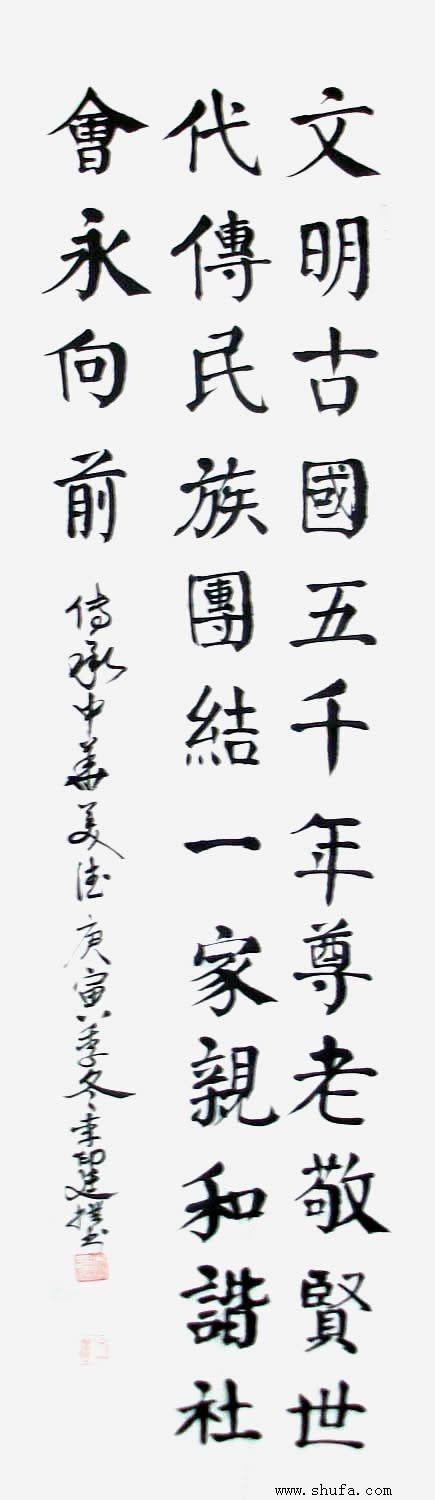 文明古國五千年尊老敬賢世
代傳民族團結一家親和諧社
會永向前
傳承中華美德庚寅季冬李建撰書
www.shufa.com